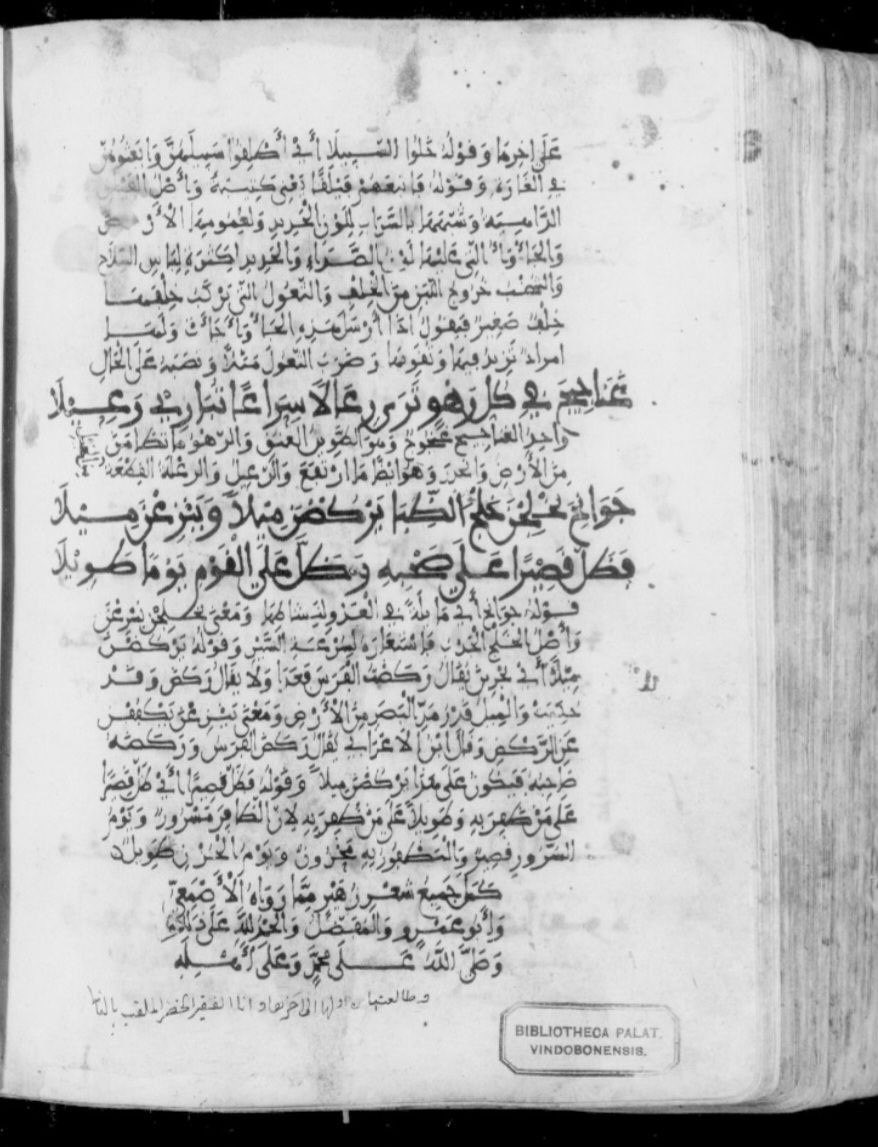 على اخرها وقوله خلوا السبيلا أي أكفوا سبيلهن واتبعوهن
في الغارة وقوله فاتبعهم فيلقا يعني كتيبة وأصل الفيلق
وشبهها بالسراب للون الحديد ولعمومها الأرض
والحديد لكثرة لباس السلاح
خروج اللبن من الخلف والثعول التي يركب خلفها
خلف صغير فيقول اذا أرسل هذه
تزيد فيها وتقويها وضرب الثعول مثلا ونصبه على الحال
عناجيج في كل رهو ترى رعالا سراعا تباري رعيلا
واحد العناجيج عنجوج وهو الطويل العنق والرهو ما تطامن
من الأرض وانحدر وهو ايضا ما ارتفع والرعيل والرعلة القطعة
جوانح يخلجن خلج الظبا يركضن ميلا وينزعن ميلا
فظل قصيرا على صحبه وظل على القوم يوما طويلا
قوله جوانح أي مائلة في العدو لنشاطها ومعنى يخلجن يسرعن
وأصل الخلج الجذب فاستعاره لسرعة السير وقوله يركضن
ميلا أي يجرين يقال ركضت الفرس فعدا ولا يقال ركض وقد
حكيت والميل قدر مد البصر من الأرض ومعنى ينزعن يكففن
عن الركض وقال ابن الاعرابي يقال ركض الفرس وركضه
صاحبه فيكون على هذا يركضن ميلا وقوله فظل قصيرا أي ظل قصيرا
على من ظفر به وطويلا على من ظفر به لان الظافر مسرور ويوم
السرور قصير والمظفور به محزون ويوم الحزن طويل
كمل جميع شعر زهير مما رواه الأصمعي
وأبو عمرو والمفضل والحمد لله على ذلك
وصلى الله على محمد وعلى أهله
وطالعتها من اولها الى اخرها وانا الفقير الخضر الملقب
BIBLIOTHECA PALAT.
VINDOBONENSIS.